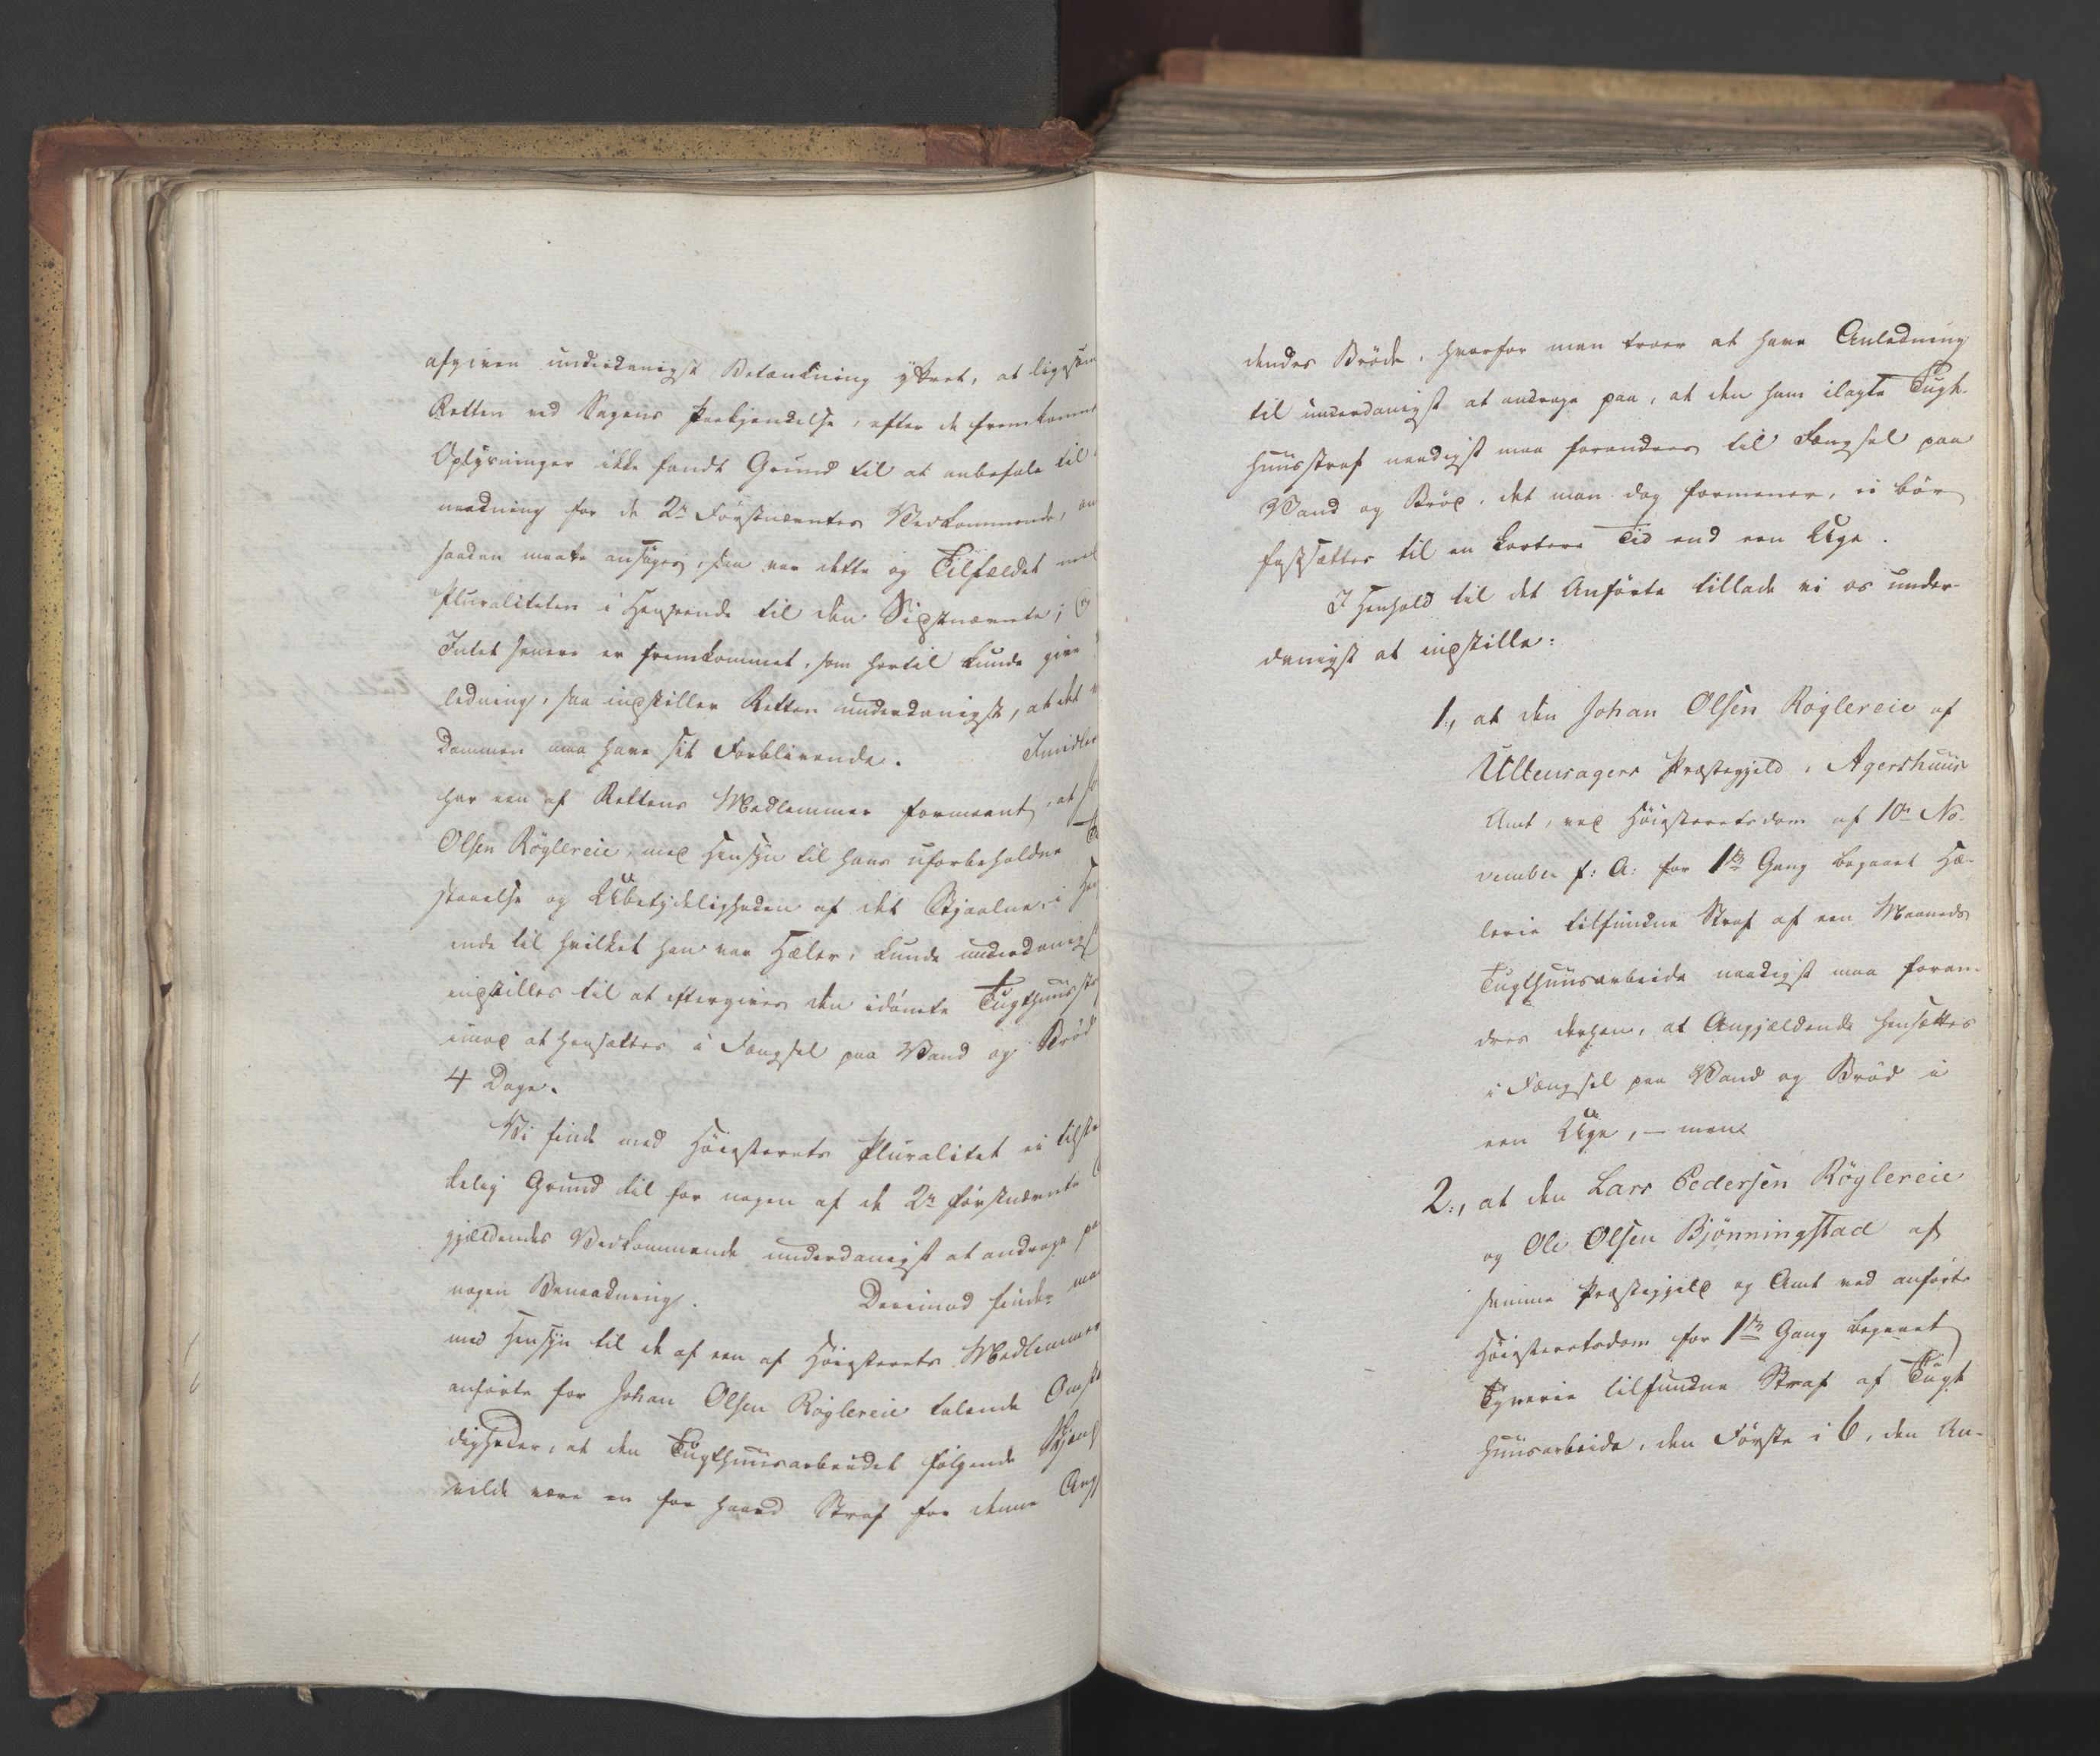 afgiven underdanigst Betænkning yttret, at ligesom
Retten ved Sagens Paakjendelse, efter de fremkomne
Oplysninger ikke fandt Grund til at anbefale til
naadning for de 2de Førstnævntes Vedkommende,
saadan maatte ansøges, saa var dette og Tilfældet med
Pluraliteten i Henseende til den Sidstnævnte;
Intet senere er fremkommet, som hertil kunde give
ledning, saa indstiller Retten underdanigst, at det
Dommen maa have sit Forblivende. Imidler
har een af Rettens Medlemmer formeent, at
Olsen Røglereie, med Hensyn til hans uforbeholdne
staaelse og Ubetydeligheden af det Stjaalne, i Hen
ende til hvilket han var Hæler, kunde underdanigst
indstilles til at eftergives den idømte Tugthuusstr
imod at hensættes i Fængsel paa Vand og Brød
4 Dage.
Vi finde med Høiesterets Pluralitet ei tilstr
kelig Grund til for nogen af de 2de førstnævnte
gjældendes Vedkommende underdanigst at andrage paa
nogen Benaadning. Derimod finder man
med Hensyn til de af een af Høiesterets Medlemmer
anførte for Johan Olsen Røglereie talende Omst
digheder, at den Tugthuusarbeidet følgende Skjænd
vilde være en for haard Straf for denne Ang
dendes Brøde, hvorfor man troer at have Anledning
til underdanigst at andrage paa, at den ham ilagte Tugt-
huusstraf naadigst maa forandres til Fængsel paa
Vand og Brød, det man dog formener, ei bør
fastsættes til en kortere Tid end een Uge.
I Henhold til det Anførte tillade vi os under-
danigst at indstille:
1., at den Johan Olsen Røglereie af
Ullensagers Præstegjeld, Agershuus
Amt, ved Høiesteretsdom af 10de No-
vember f: A: for 1ste Gang begaaet Hæ-
lerie tilfundne Straf af een Maaneds
Tugthuusarbeide naadigst maa foran-
dres derhen, at Angjældende hensættes
i Fængsel paa Vand og Brød i
een Uge, – men
2., at den Lars Pedersen Røglereie
og Ole Olsen Bjønningstad af
samme Præstegjeld og Amt ved anførte
Høiesteretsdom for 1ste Gang begaaet
Tyverie tilfundne Straf af Tugt
huusarbeide, den Første i 6, den An-